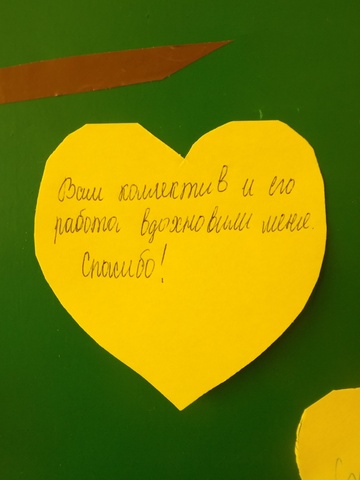 Ваш коллектив и его
работа вдохновили меня.
Спасибо!